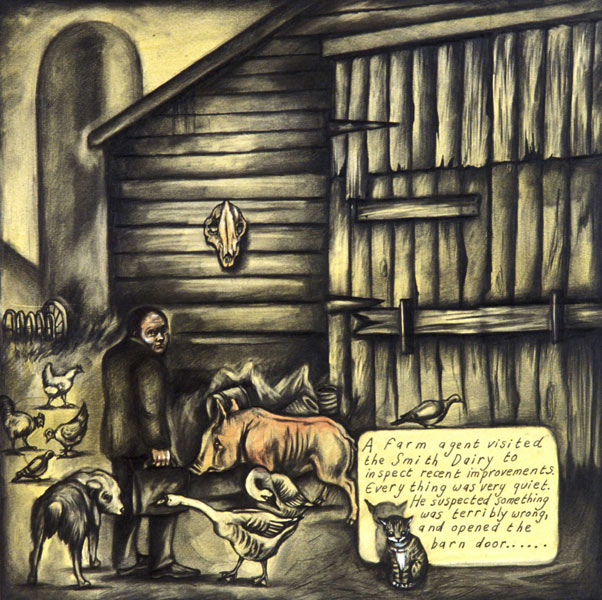 A farm agent visited
the Smith Dairy to
inspect recent improvements.
Every thing was very quiet.
He suspected something
was terribly wrong,
and opened the
barn door......